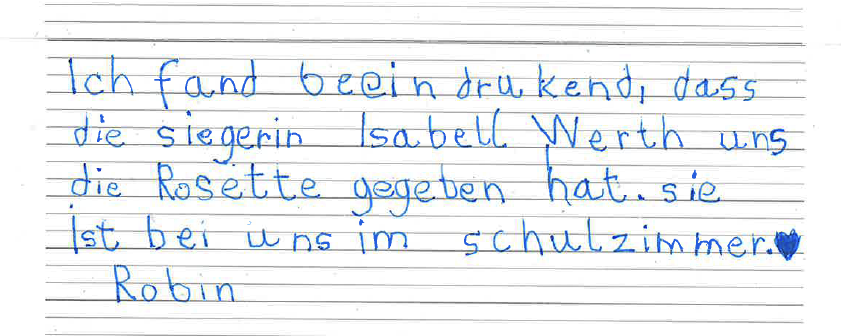 Ich fand beein drukend, dass
die siegerin Isabell Werth uns
die Rosette gegeben hat. sie
Ist bei uns im schulzimmer.♥
Robin